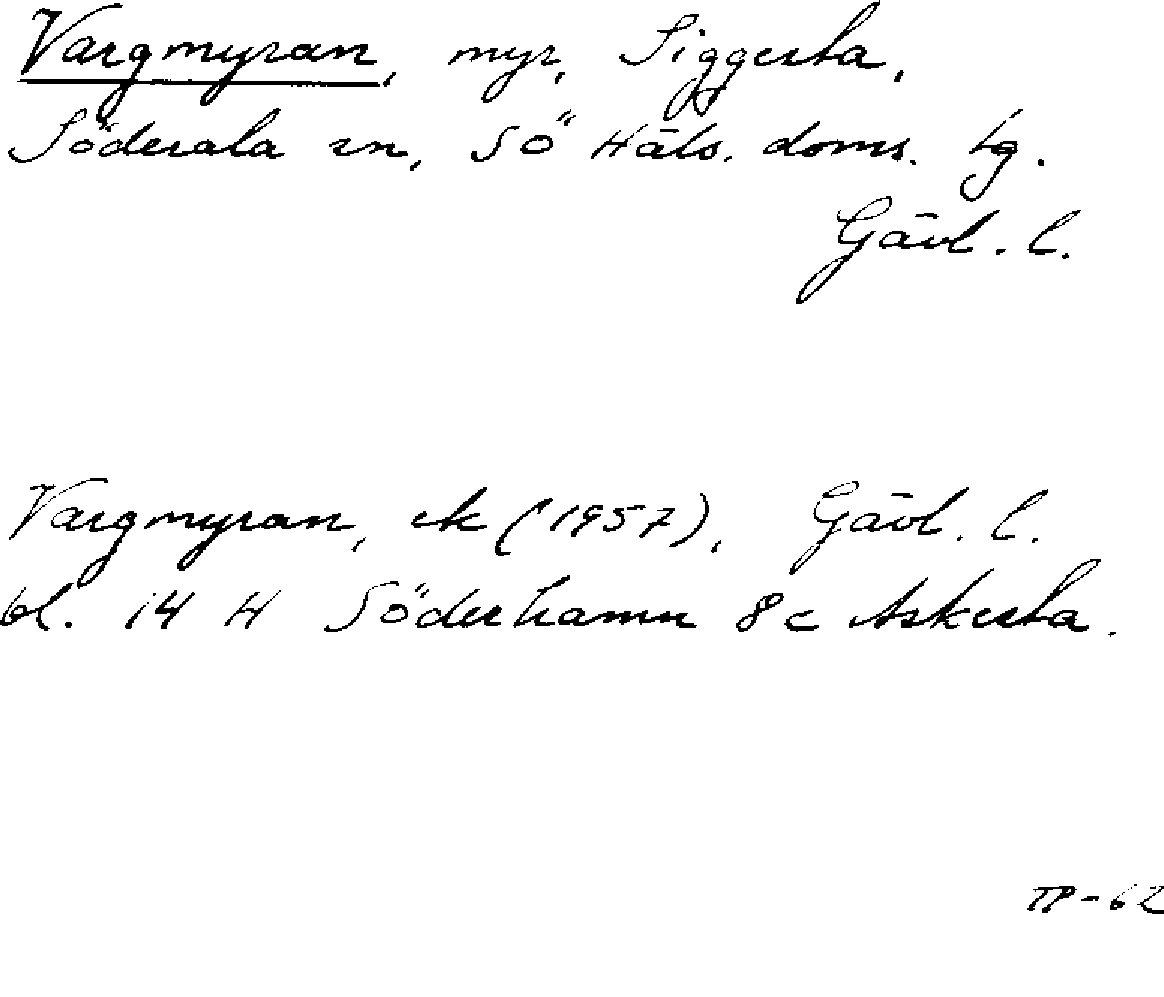 Vargmyran, myr, Siggesta,
Söderala sn, SÖ Häls. doms. tg.
Gävl. l.
Vargmyran, ek (1957), Gävl. l.
bl. 14 H Söderhamn 8 c Askesta.
TP-62